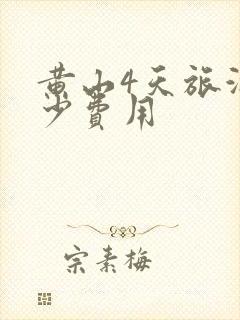 黄山4天旅游
少费用
宗素梅